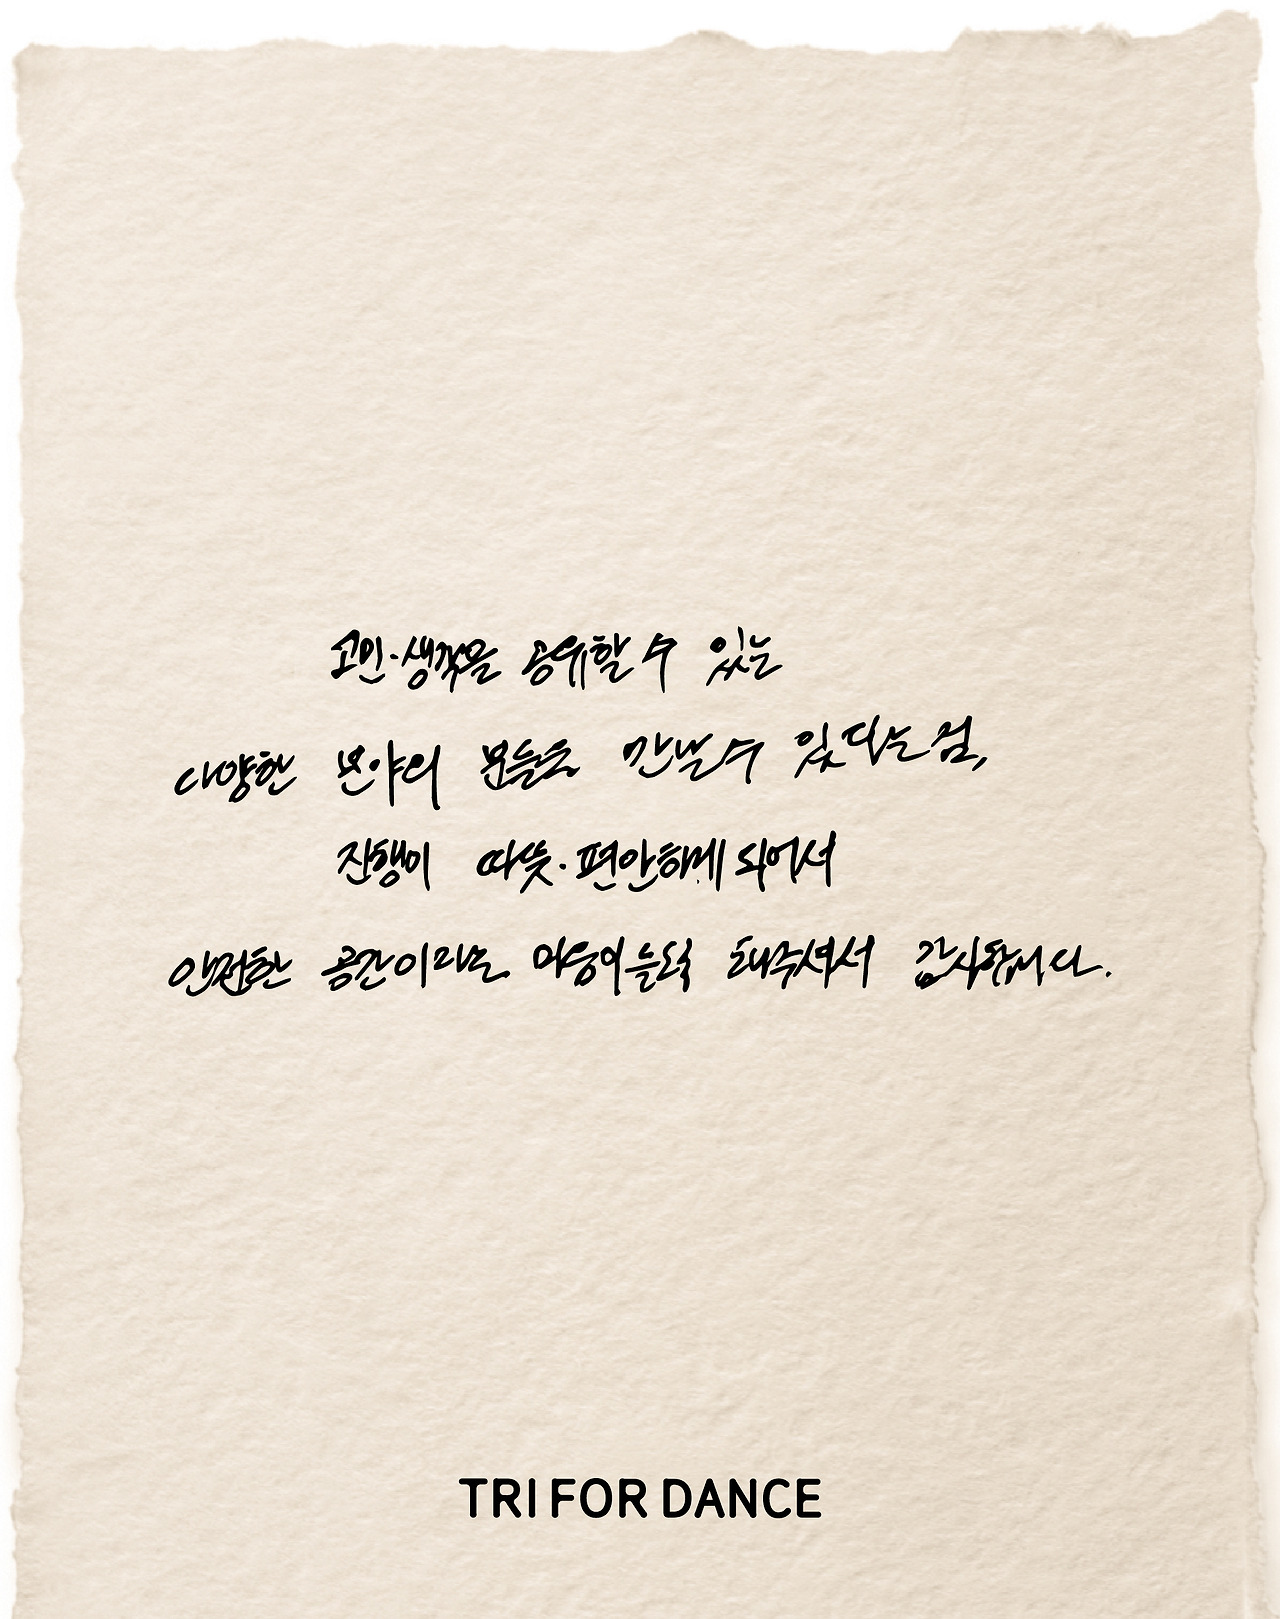 고민·생각을 공유할 수 있는
다양한 분야의 분들을 만날 수 있다는 점,
진행이 따뜻·편안하게 되어서
안전한 공간이라는 마음이 들도록 해주셔서 감사합니다.
TRI FOR DANCE